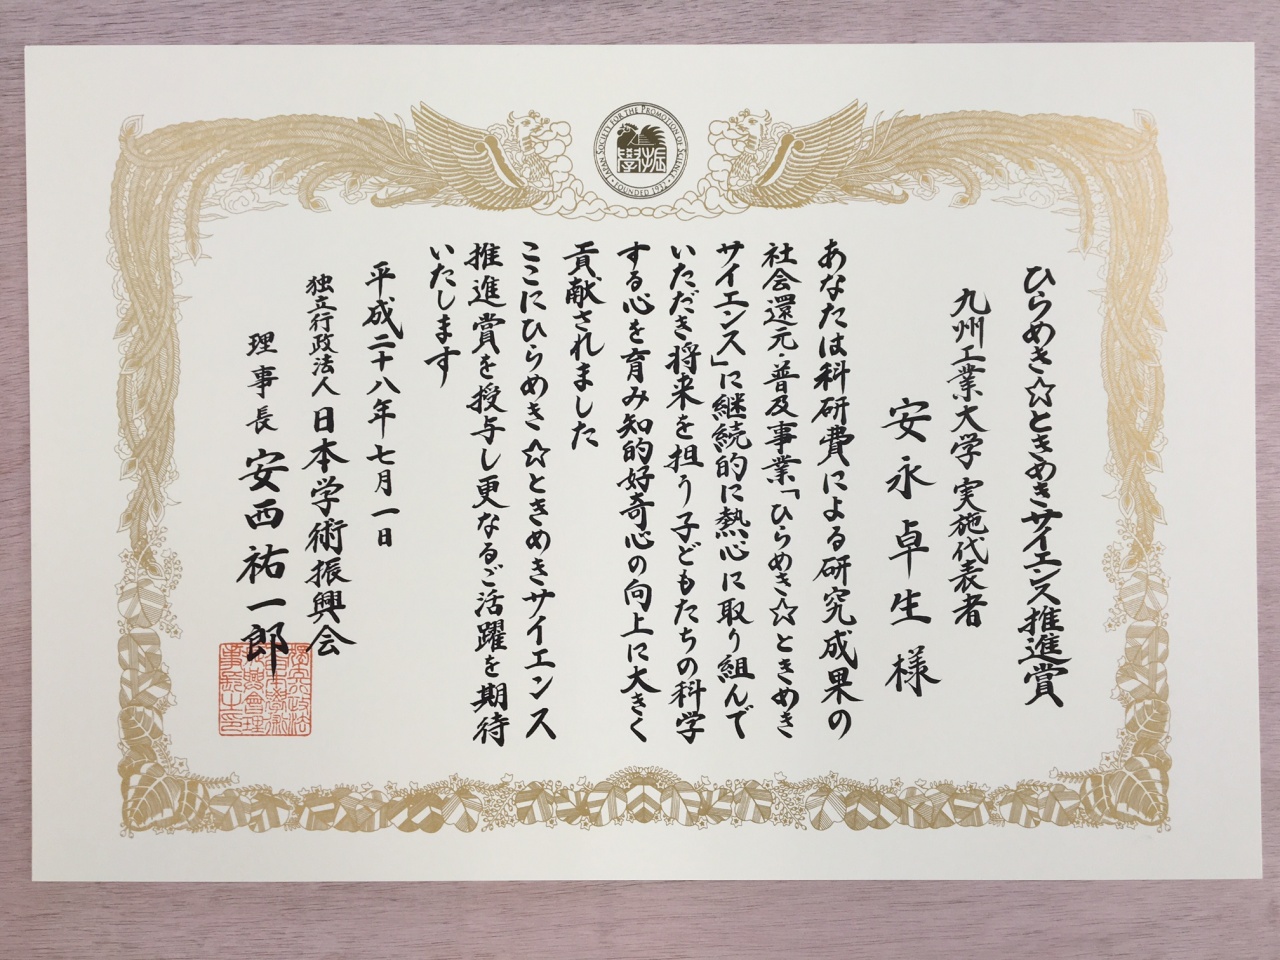 JAPAN SOCIETY FOR THE PROMOTION OF SCIENCE
FOUNDED 1932
学術振
ひらめき☆ときめきサイエンス推進賞
九州工業大学 実施代表者
安永卓生様
あなたは科研費による研究成果の
社会還元・普及事業「ひらめき☆ときめき
サイエンス」に継続的に熱心に取り組んで
いただき将来を担う子どもたちの科学
する心を育み知的好奇心の向上に大きく
貢献されました
ここにひらめき☆ときめきサイエンス
推進賞を授与し更なるご活躍を期待
いたします
平成二十八年七月一日
独立行政法人日本学術振興会
理事長 安西祐一郎